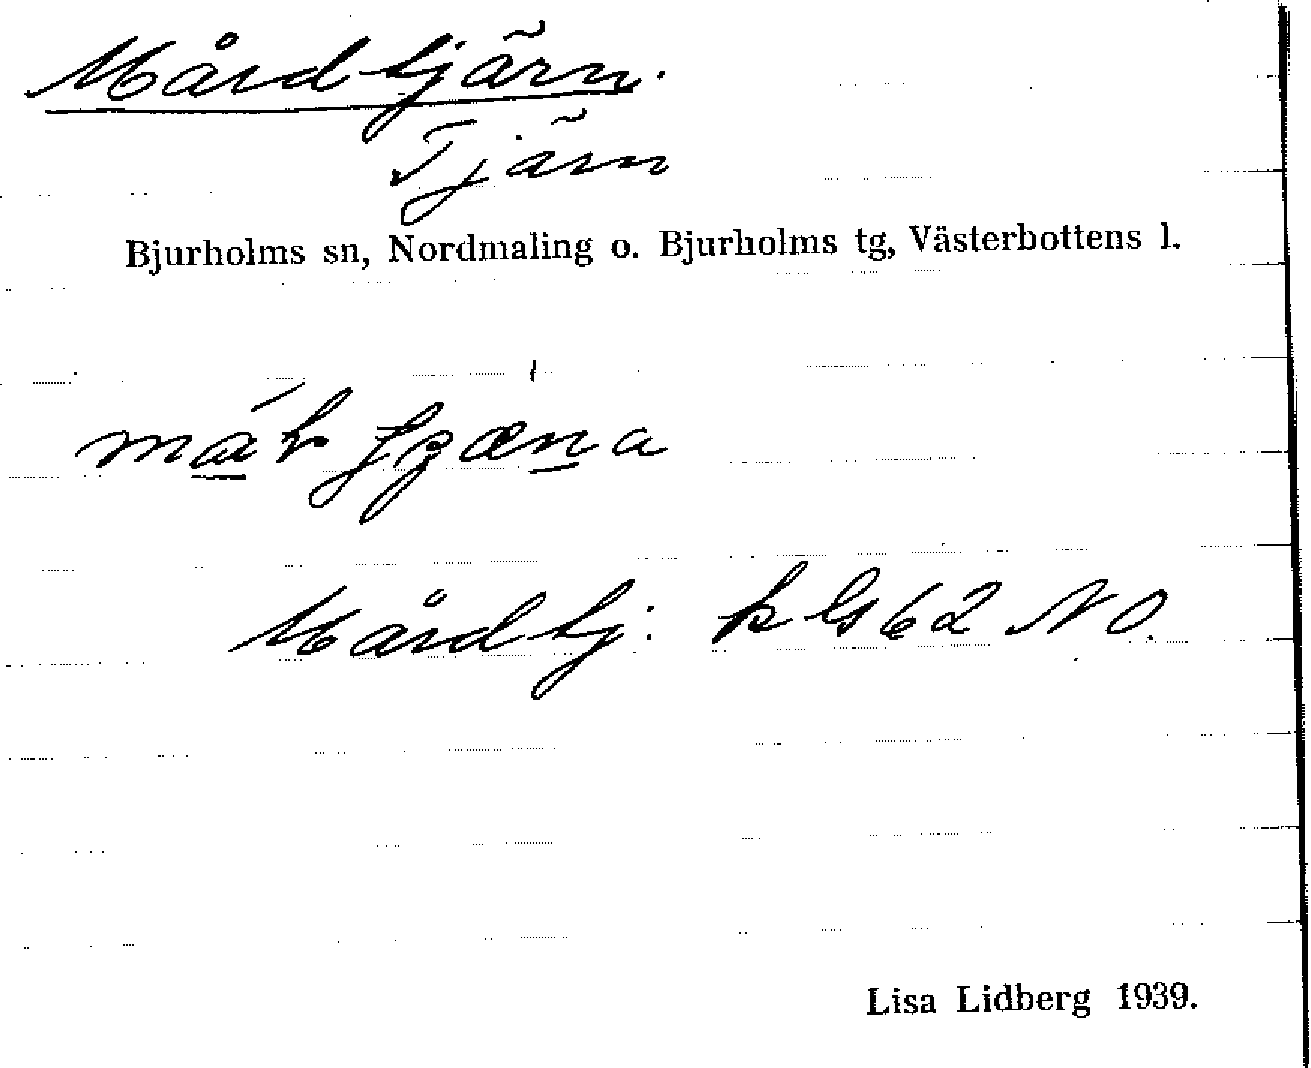 Mårdtjärn.
Tjärn
Bjurholms sn, Nordmaling o. Bjurholms tg, Västerbottens l.
Mårdtj: k Gs 62 NO.
Lisa Lidberg 1939.